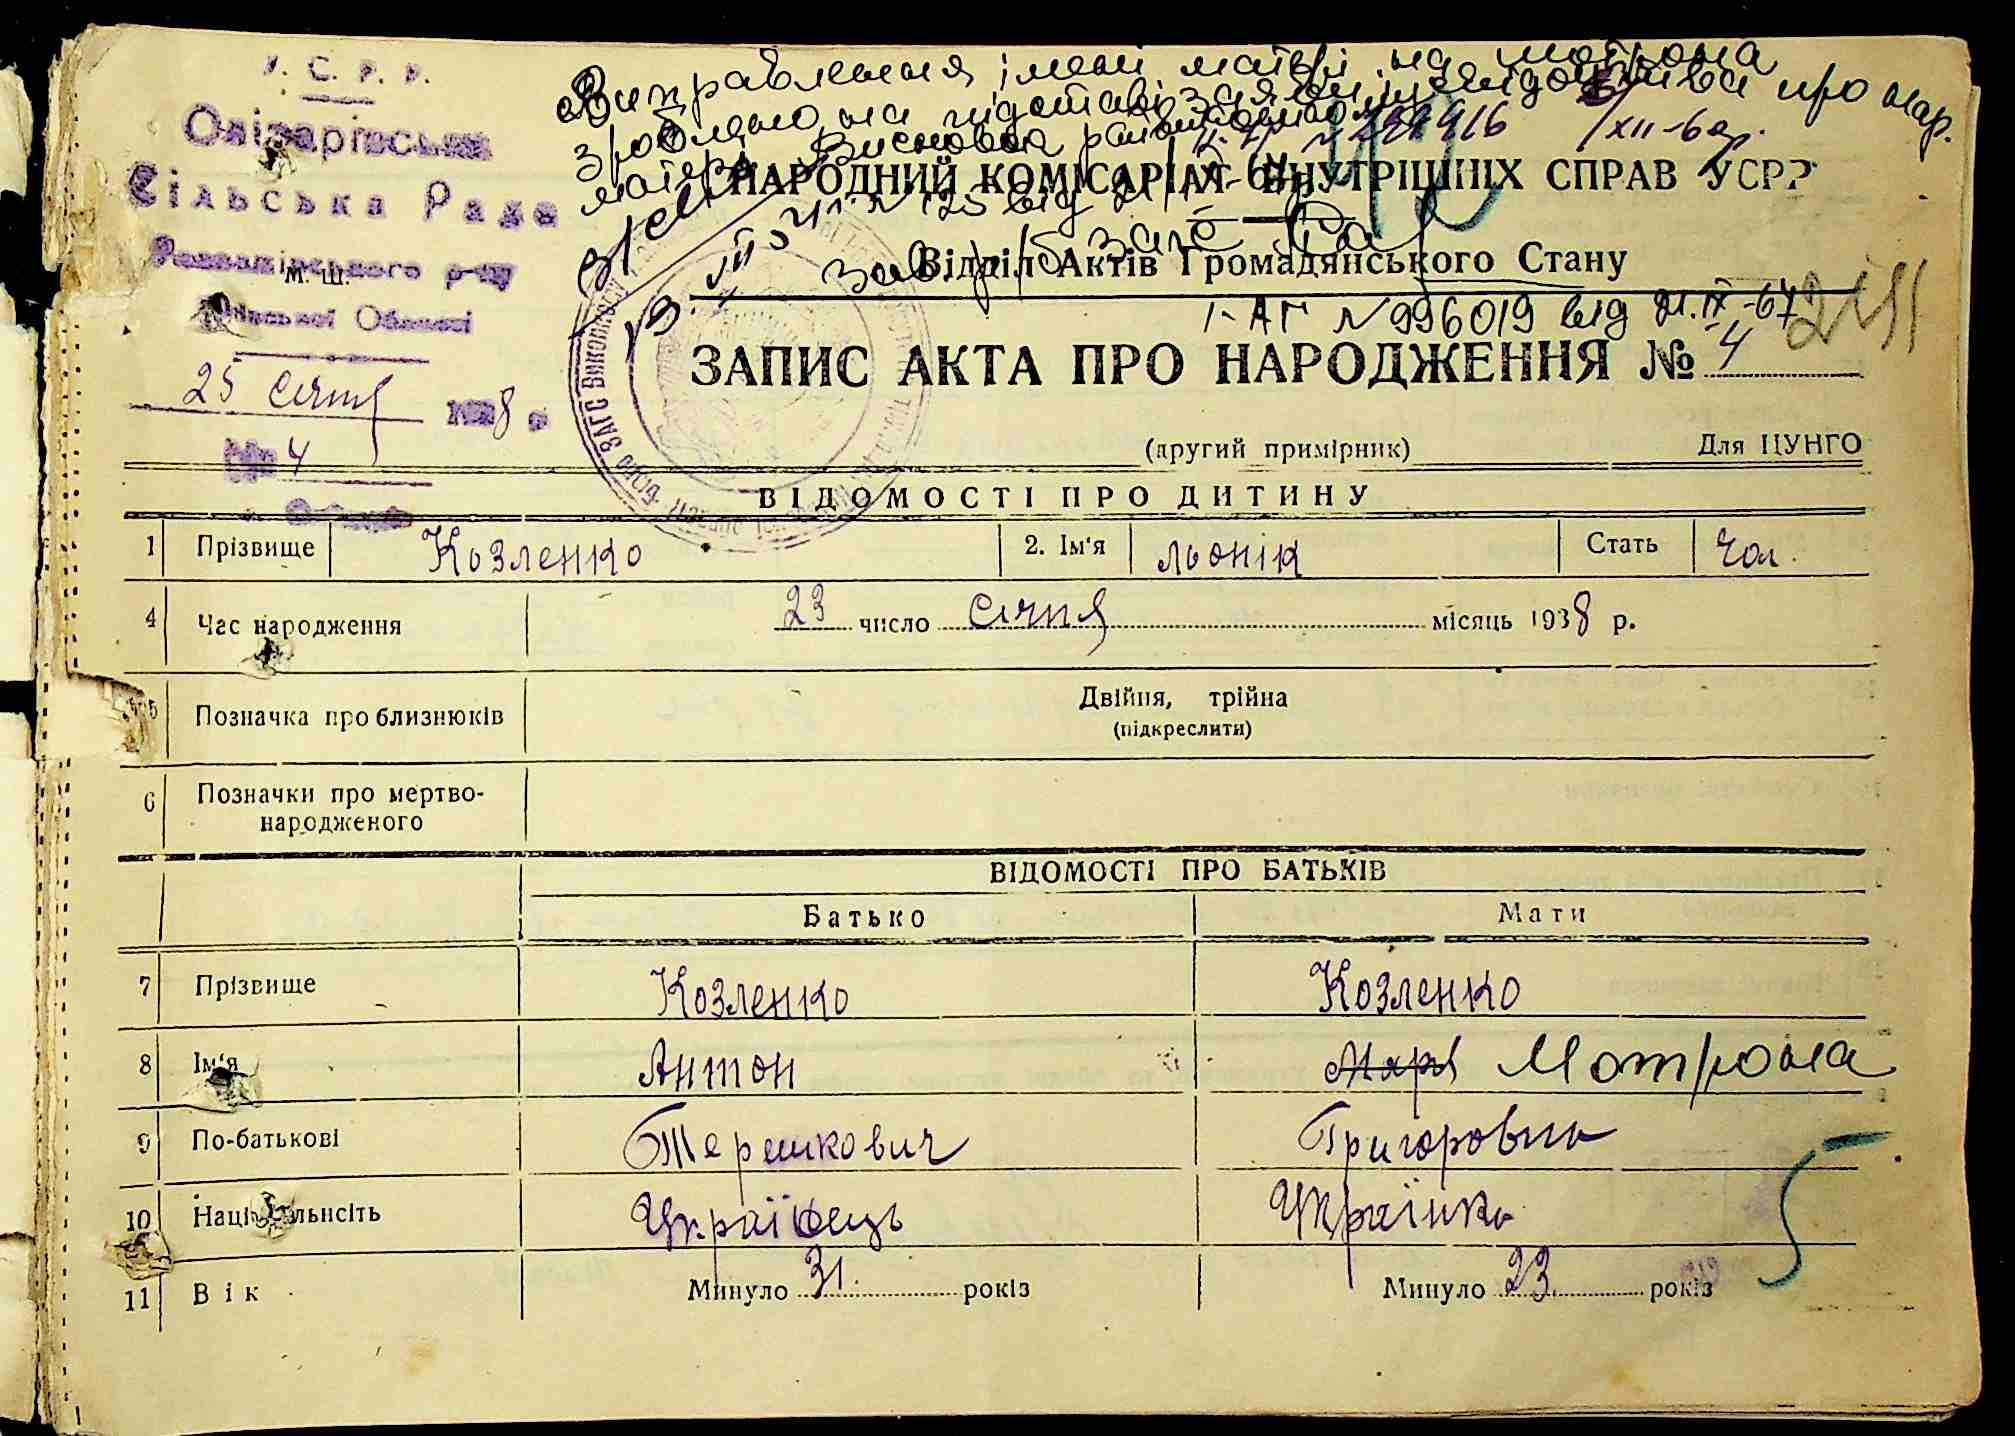 У. С. Р. Р.
Сільська Рада
М. Ш.
Області
25 січня 1938 р.
№ 4
Виправлення імені матері на Мотрона
зроблено на підставі заяви свідоцтва про нар.
матері
НАРОДНИЙ КОМІСАРІАТ ВНУТРІШНІХ СПРАВ УСРР
Відділ Актів Громадянського Стану
І-АГ № 996019 від 21.ІХ-67
ЗАПИС АКТА ПРО НАРОДЖЕННЯ № 4
(другий примірник) Для ЦУНГО
ВІДОМОСТІ ПРО ДИТИНУ
1 Прізвище Козленко 2. Ім'я Льонік Стать Чол.
4 Час народження 23 число січня місяць 1938 р.
5 Позначка про близнюків Двійня, трійна
(підкреслити)
6 Позначки про мертво-
народженого
ВІДОМОСТІ ПРО БАТЬКІВ
Батько Мати
7 Прізвище Козленко Козленко
8 Ім'я Антон Маря Мотрона
9 По-батькові Терешкович Григоровна
10 Національність Українець Українка
11 Вік Минуло 31. років Минуло 23. років
5